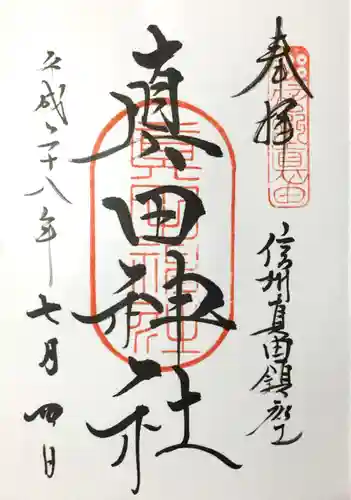 奉拝
信州真田鎮座
真田神社
平成二十八年七月四日